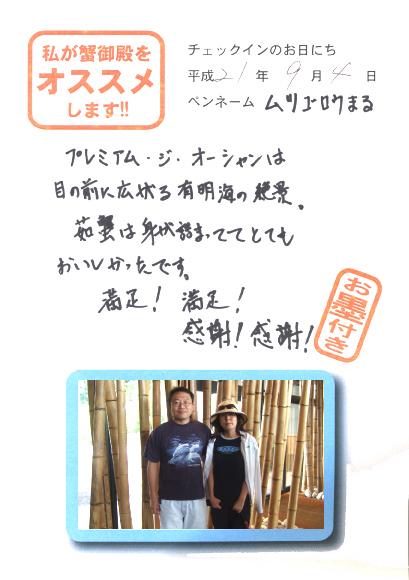 私が蟹御殿を
オススメ
します!!
チェックインのお日にち
平成21年9月4日
ペンネーム ムツゴロウまる
プレミアム・ジ・オーシャンは
目の前に広がる有明海の絶景。
茹蟹は身が詰まっててとても
おいしかったです。
満足! 満足!
感謝! 感謝!
お墨付き